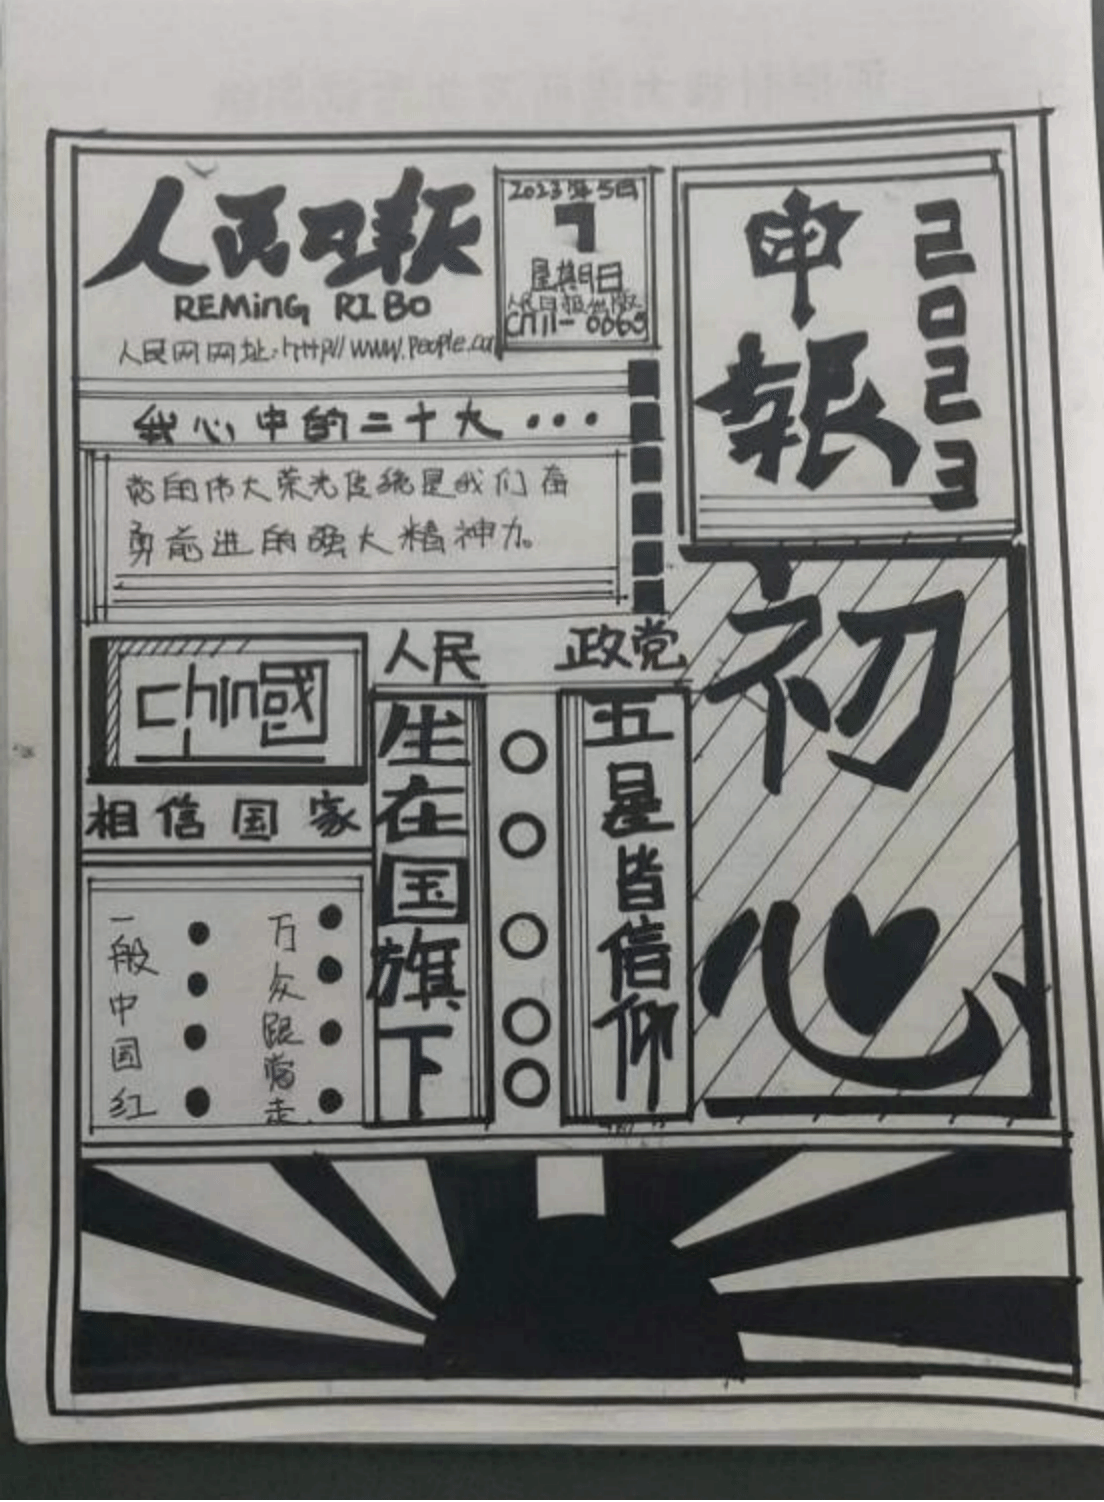 人民日报
REMinG RIBO
人民网网址:http//www.people.com
2023年5月
7
星期日
人民日报出版
CN11-0065
申報
2023
我心中的二十大...
党的伟大荣光传统是我们奋
勇前进的强大精神力。
初心
chin國
相信国家
人民
生在国旗下
政党
五星皆信仰
一般中国红
万众跟党走